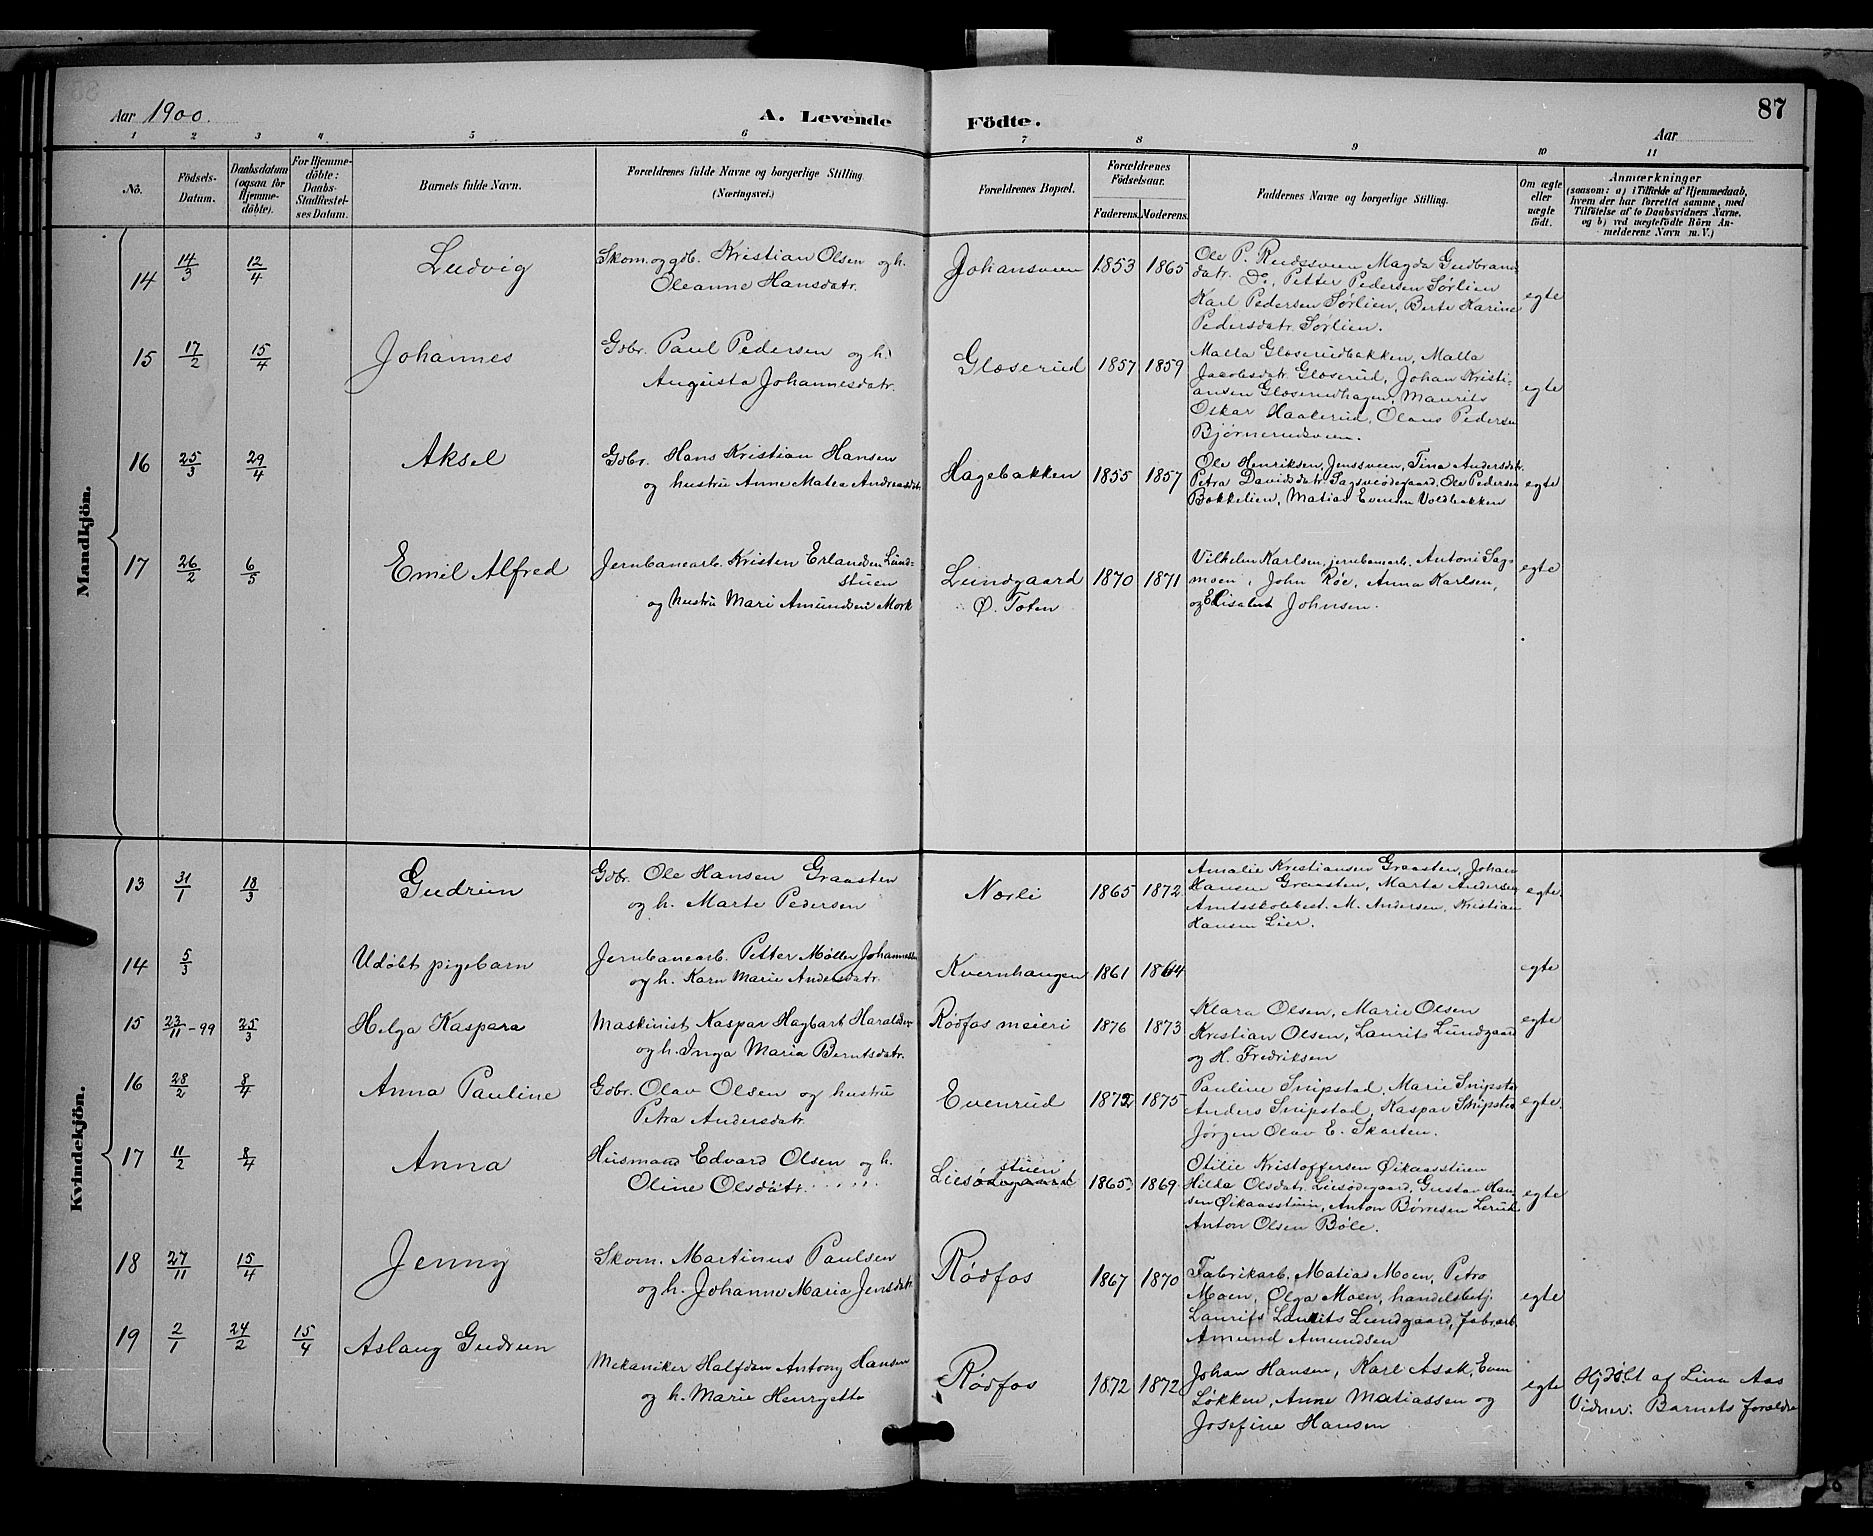 Aar 1900.
A. Levende Födte.
87
Aar
1 2 3 4 5 6 7 8 9 10 11
No.
Födsels-Datum.
Daabsdatum (ogsaa for Hjemme-döbte).
For Hjemme-döbte: Daabs-Stadfæstelses Datum.
Barnets fulde Navn.
Forældrenes fulde Navne og borgerlige Stilling (Næringsvei.)
Forældrenes Bopæl.
Forældrenes Födselsaar.
Faderens. Moderens.
Faddernes Navne og borgerlige Stilling.
Om ægte eller uægte født.
Anmærkninger
(saasom: a) i Tilfælde af Hjemmedaab,
hvem der har forrettet samme, med
Tilføielse af to Daabsvidners Navne,
og b) ved uægtefödte Börn An-
melderens Navn m. V.)
Mandkjön.
14 14/3 12/4 Ludvig
Skom. og gdb. Kristian Olsen og h.
Oleanne Hansdatr.
Johansveen 1853 1865
Ole P. Rudssveen Magda Gudbrands
datr. Do, Petter Pedersen Sørlien
Karl Pedersen Sørlien, Berte Karine
Pedersdatr. Sørlien.
egte
15 17/2 15/4 Johannes
Gdbr. Paul Pedersen og h.
Augusta Johannesdatr.
Glæserud 1857 1859
Malla Glæserudbakken, Malla
Jacobsdatr. Glæserud, Johan Kristi-
ansen Glæserudhagen, Maurits
Oskar Haakerud, Olaus Pedersen
Bjørnerudsveen.
egte
16 25/3 29/4 Aksel
Gdbr. Hans Kristian Hansen
og hustru Anne Matea Andreasdatr.
Hagebakken 1855 1857
Ole Henriksen, Jenssveen, Tina Andersdatr.
Petra Davidsdatr. Sagsveødegaard, Ole Pedersen
Bakkelien, Matias Evensen Voldbakken
egte
17 26/2 6/5 Emil Alfred
Jernbanearb. Kristen Erlandsen Lund-
stuen
og hustru Mari Amundsen Mork
Lundgaard
Ø. Toten
1870 1871
Vilhelm Karlsen, jernbanearb. Antoni Sag-
moen, John Röe, Anna Karlsen,
og Elisabet Johnsen.
egte
Kvindekjön.
13 31/1 18/3 Gudrun
Gdbr. Ole Hansen Graasten
og h. Marte Pedersen
Nærli 1865 1872
Amalie Kristiansen Graasten, Johan
Hansen Graasten, Marta Andersen
Amtsskolebest. M. Andersen, Kristian
Hansen Lier.
egte.
14 5/3 Udöbt pigebarn
Jernbanearb. Petter Møller Johannessen
og h. Karn Marie Andersdatr.
Kvernhaugen 1861 1864
egte
15 23/11-99 25/3 Helga Kaspara
Maskinist Kaspar Hagbart Haraldsen
og h. Inga Maria Berntsdatr.
Rödfos meieri 1876 1873
Klara Olsen, Marie Olsen
Kristian Olsen, Laurits Lundgaard
og H. Fredriksen
egte
16 28/2 8/4 Anna Pauline
Gdbr. Olav Olsen og hustru
Petra Andersdatr.
Evenrud 1872 1875
Pauline Snipstad, Marie Snipstad
Anders Snipstad, Kaspar Snipstad
Jörgen Olav E. Skarten.
egte.
17 11/2 8/4 Anna
Husmand Edvard Olsen og h.
Oline Olsdatr.
stuen
Liesødegaard 1865 1869
Otilie Kristoffersen Öikaasstuen
Hilda Olsdatr. Liesødegaard, Gustav Han-
sen Öikaasstuen, Anton Børresen Lerud
Anton Olsen Böle.
egte
18 27/11 15/4 Jenny
Skom. Martinus Paulsen
og h. Johanne Maria Jensdatr.
Rödfos 1867 1870
Fabrikarb. Matias Moen, Petra
Moen, Olga Moen, handelsbetj.
Laurits Laurits Lundgaard, fabr.arb.
Amund Amundsen
egte
19 2/1 24/2 15/4 Aslaug Gudrun
Mekaniker Halfdan Antony Hansen
og h. Marie Henryetta
Rödfos 1872 1872
Johan Hansen, Karl Asak, Even
Løkken, Anne Matiassen og
Josefine Hansen
egte
Hjdöbt af Lina Aas
Vidner: Barnets forældre